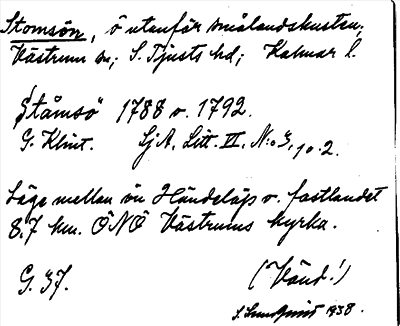 Stomsön, ö utanför smålandskusten;
Västrum sn; S. Tjusts hd; Kalmar l.
Ståmsö 1788 o. 1792.
G. Klint. Sj.A. Litt. VI, N:o 3, 10. 2.
Läge mellan ön Händelöp o. fastlandet
8,7 km. ÖNÖ Västrums kyrka.
G. 37. (Vänd!)
S. Sundquist 1938.